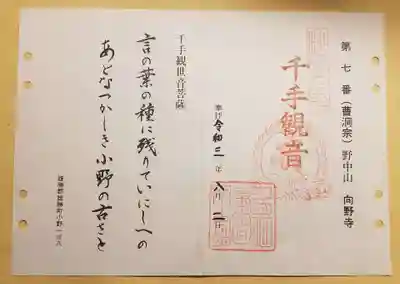 第七番(曹洞宗)野中山 向野寺
千手觀音
奉拝 令和三年八月二日
千手観世音菩薩
言の葉の種に残りていにしへの
あとなつかしき小野の古さと
雄勝郡雄勝町小野一五八